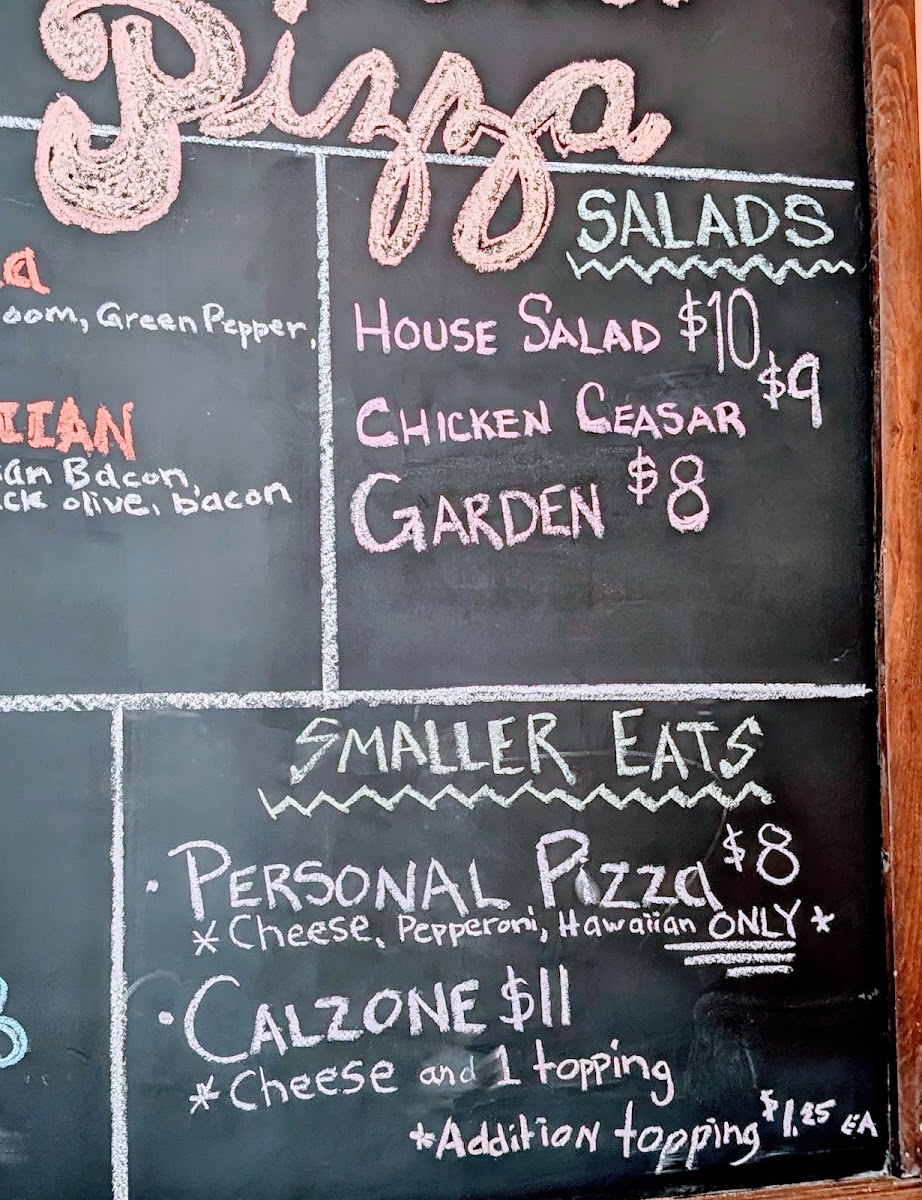 Pizza
oom, Green Pepper,
IIAN
Bacon,
olive, bacon
SALADS
HOUSE SALAD $10
CHICKEN CEASAR $9
GARDEN $8
SMALLER EATS
• PERSONAL Pizza $8
*Cheese, Pepperoni, Hawaiian ONLY*
• CALZONE $11
*Cheese and 1 topping
*Addition topping $1.25 EA